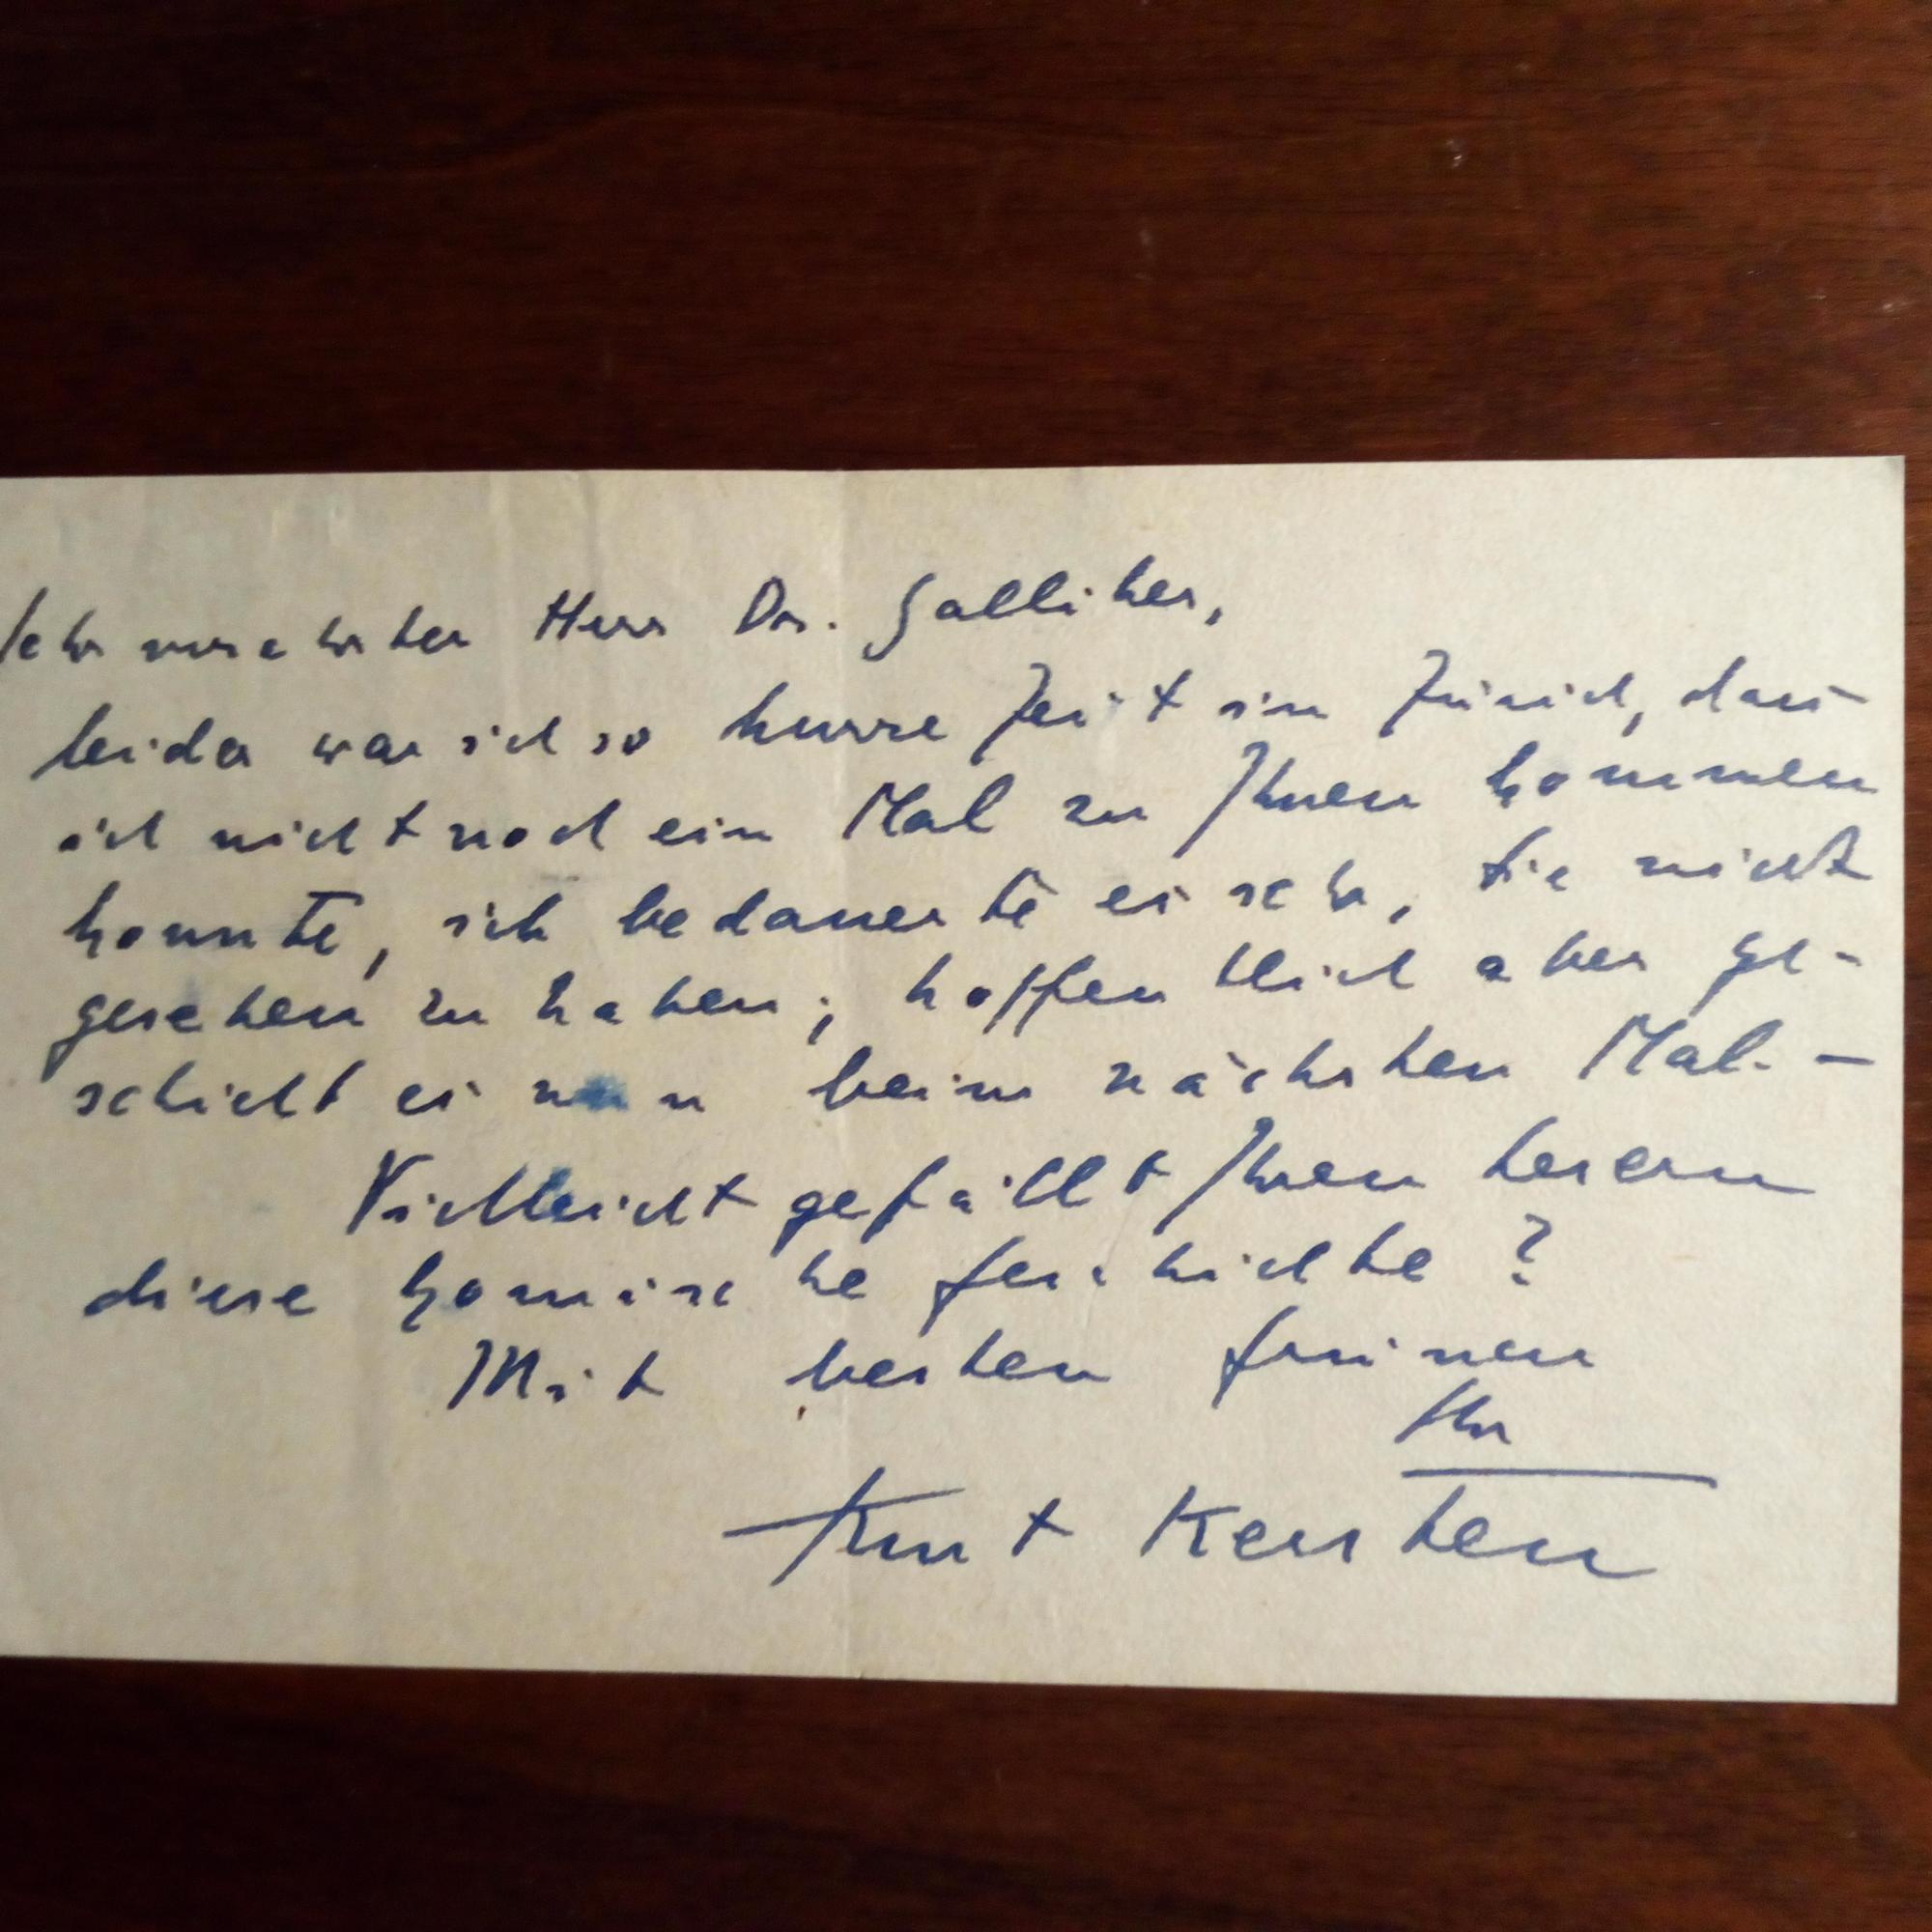 Sehr verehrter Herr Dr. Galliker,
leider war ich so kurze Zeit in Zürich, dass
ich nicht noch ein Mal zu Ihnen kommen
konnte, ich bedauerte es sehr, Sie nicht
gesehen zu haben; hoffentlich aber ge-
schieht es nun beim nächsten Mal. —
Vielleicht gefällt Ihren Lesern
diese komische Geschichte?
Mit besten Grüssen
Ihr
Kurt Kersten